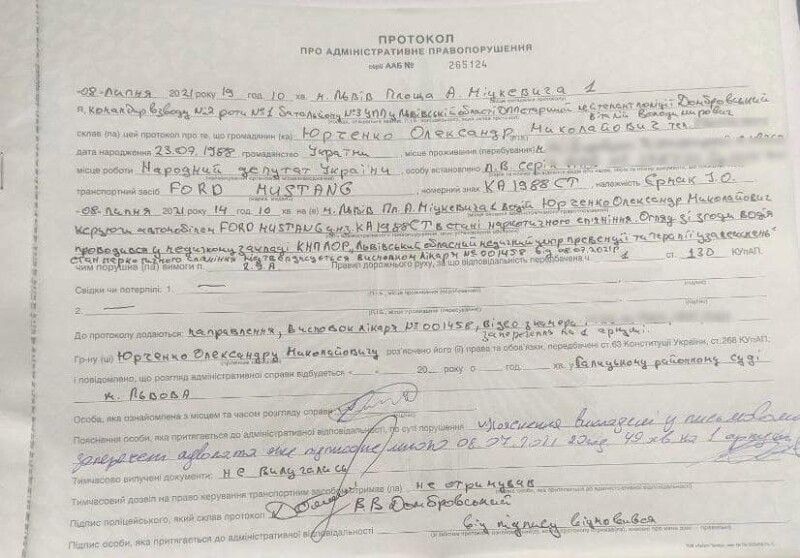 ПРОТОКОЛ
ПРО АДМІНІСТРАТИВНЕ ПРАВОПОРУШЕННЯ
серії ААБ № 265124
«08» липня 2021 року 19 год. 10 хв. м. Львів Площа А. Міцкевича 1
Я, командир взводу №2 роти №1 батальйону №3 УПП у Львівській області ДПП старший лейтенант поліції Домбровський
Віталій Володимирович
склав (ла) цей протокол про те, що громадянин (ка) Юрченко Олександр Миколайович тел.
дата народження 23.09.1988 громадянство України, місце проживання (перебування)
місце роботи Народний депутат України, особу встановлено П.В. серія
транспортний засіб FORD MUSTANG, номерний знак КА1988СТ, належність Єрмак І.О.
«08» липня 2021 14 год. 10 хв на (в) м. Львів Пл. А. Міцкевича 1 водій Юрченко Олександр Миколайович
керував автомобілем FORD MUSTANG днз КА1988СТ в стані наркотичного сп'яніння. Огляд зі згоди водія
проводився у медичному закладі КНП ЛОР "Львівський обласний медичний центр превенції та терапії узалежнень"
стан наркотичного сп'яніння підтверджується висновком лікаря №001458 від 08.07.2021р.
чим порушив (ла) вимоги п. 2.9 А Правил дорожнього руху, за що відповідальність передбачена ч. 1 ст. 130 КУпАП.
Свідки чи потерпілі: 1.
2.
До протоколу додаються: направлення, висновок лікаря №001458, відео з камери
заперечення на 1 аркуші.
Гр-ну (ці) Юрченко Олександру Миколайовичу роз'яснено його (її) права та обов'язки, передбачені ст.63 Конституції України, ст.268 КУпАП,
і повідомлено, що розгляд адміністративної справи відбудеться « » 20 року о год. хв. у Галицькому районному суді
м. Львова
Особа, яка ознайомлена з місцем та часом розгляду справи
Пояснення особи, яка притягається до адміністративної відповідальності, по суті порушення пояснення викладені у письмовому
запереченні адвоката 08.07.2021 20 год 49 хв на 1 аркуші
Тимчасово вилучені документи: не вилучались
Тимчасовий дозвіл на право керування транспортним засобом отримав (ла) не отримував
Підпис поліцейського, який склав протокол В В Домбровський
Підпис особи, яка притягається до адміністративної відповідальності від підпису відмовився